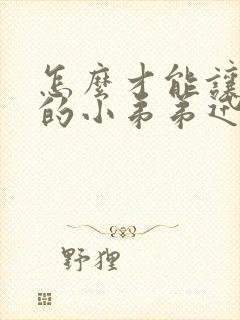 怎麼才能讓
的小弟弟近
野狸